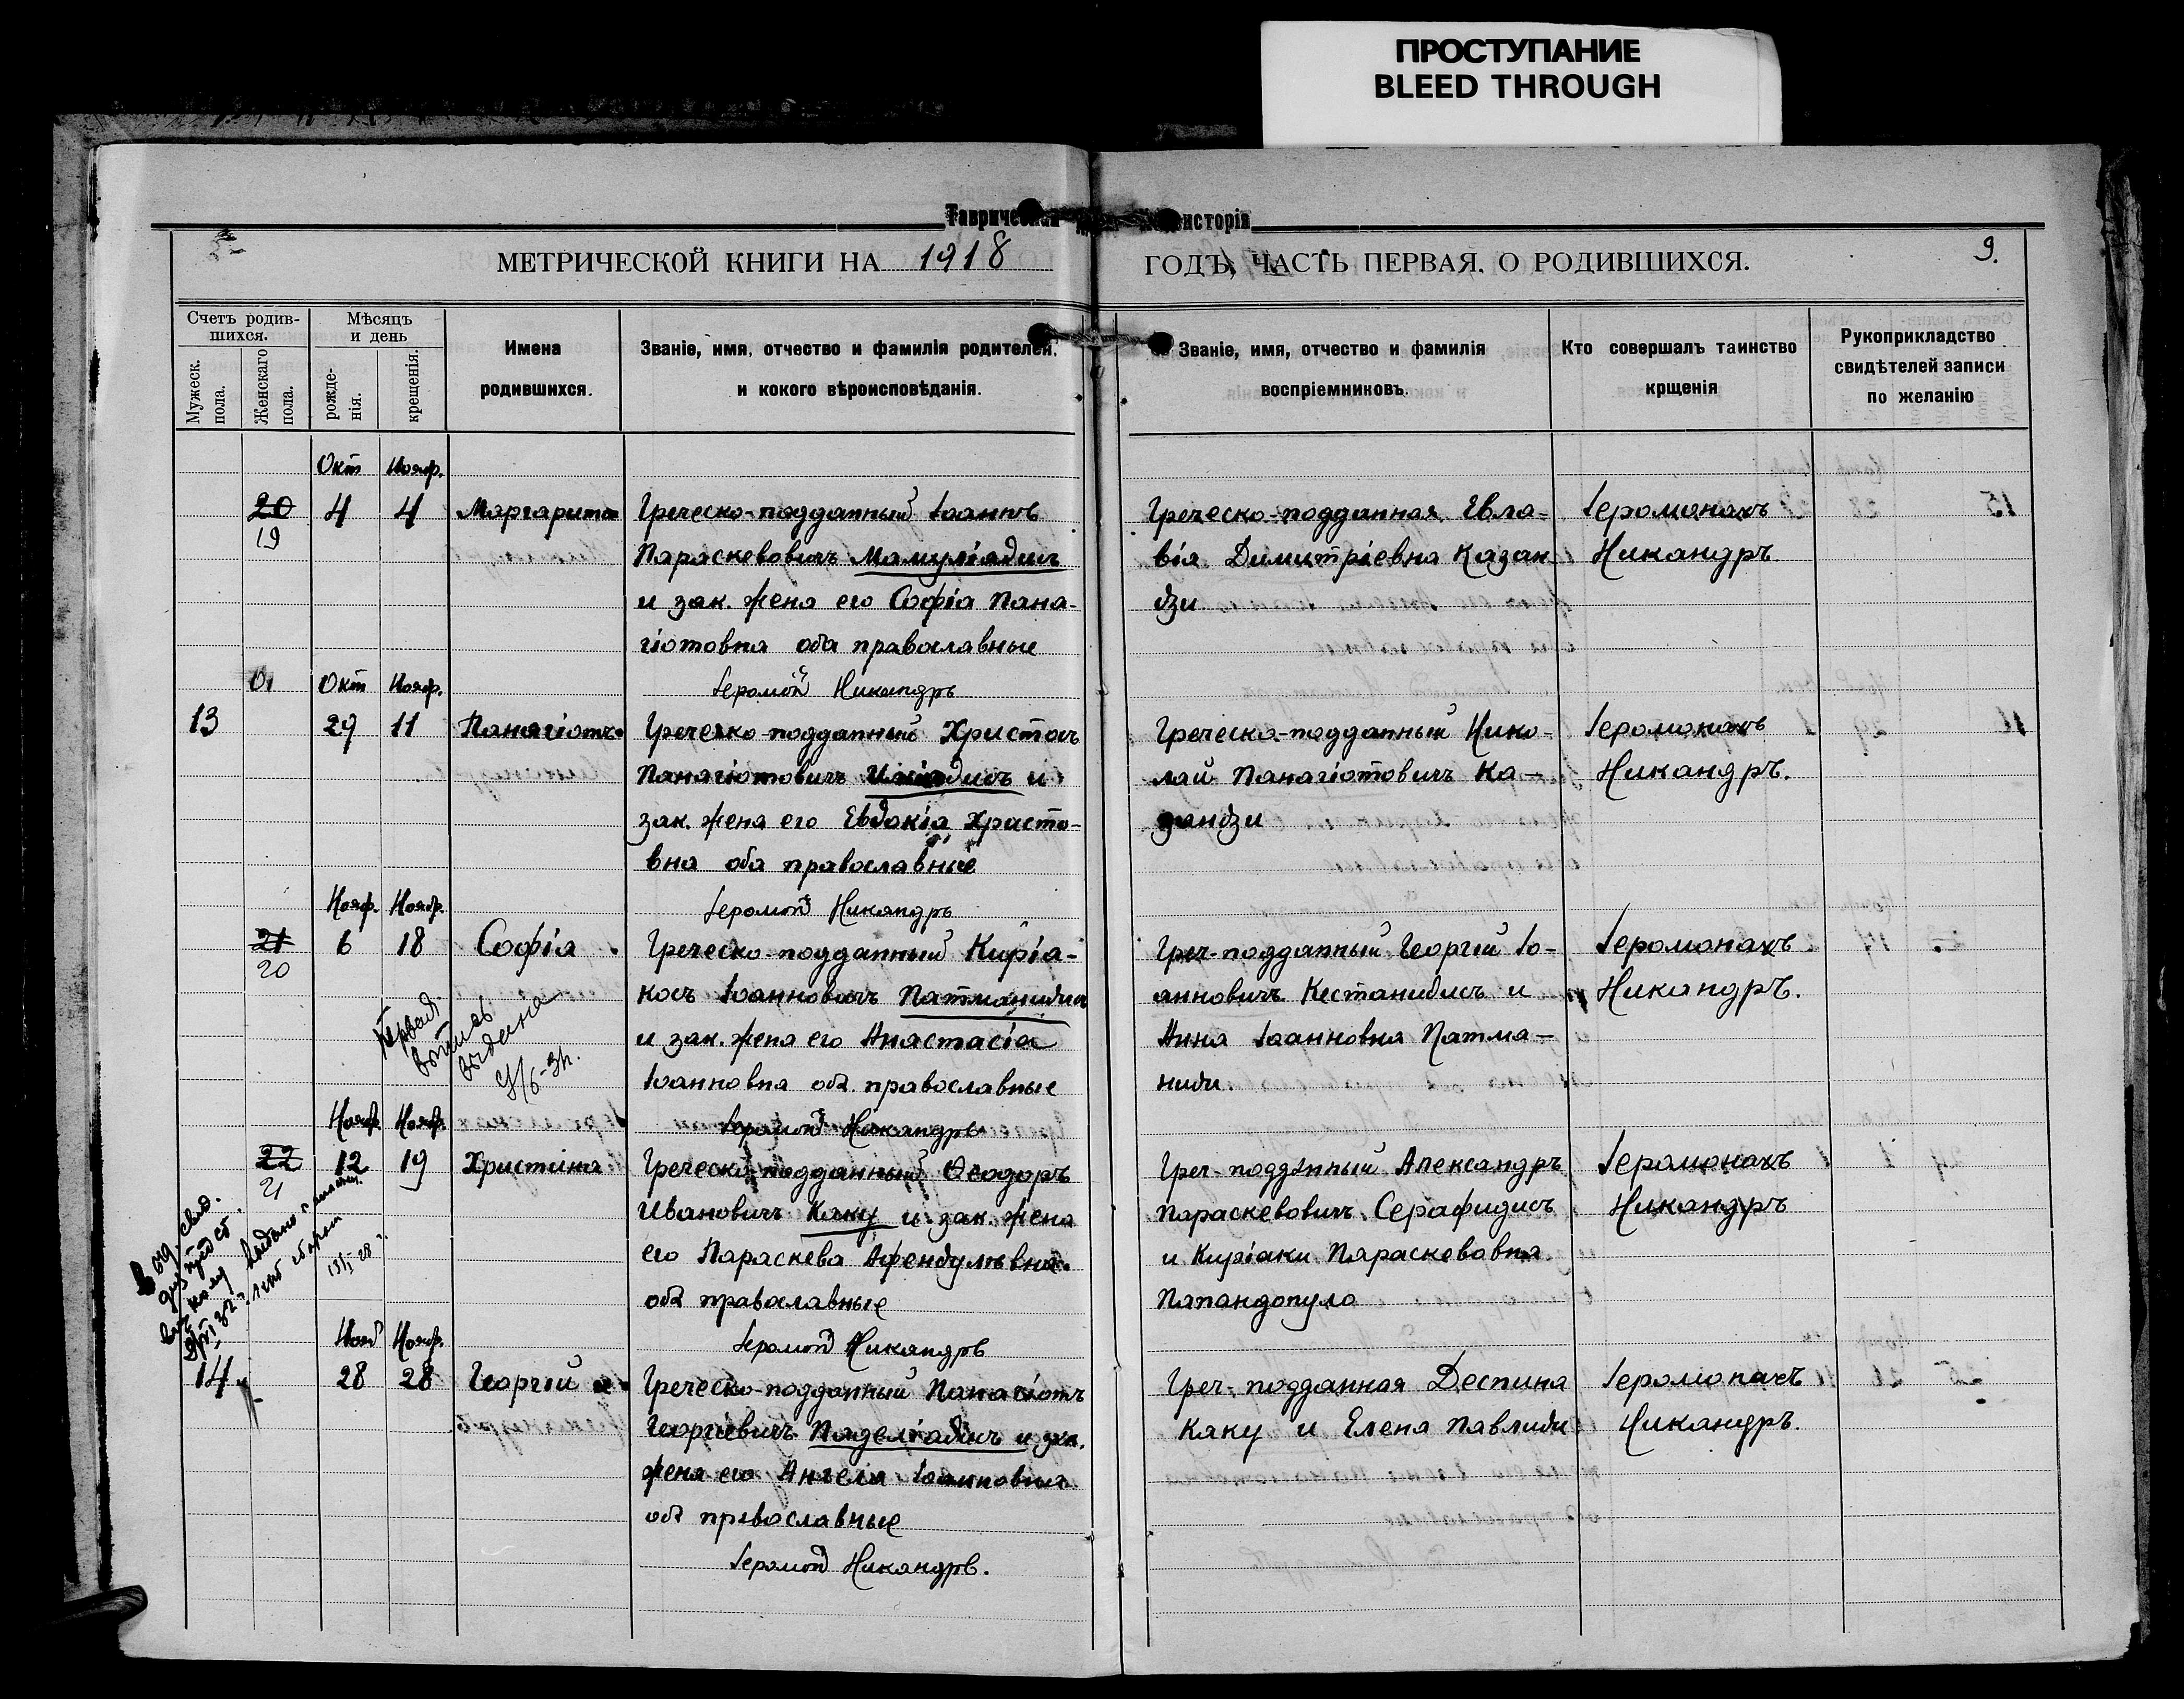 ПРОСТУПАНИЕ
BLEED THROUGH
МЕТРИЧЕСКОЙ КНИГИ НА 1918
ГОДЪ, ЧАСТЬ ПЕРВАЯ, О РОДИВШИХСЯ.
9.
Счетъ родив-
шихся.
Мужеск.
пола.
Женскаго
пола.
Мѣсяцъ
и день
рожде-
нія.
крещенія.
Имена
родившихся.
Званіе, имя, отчество и фамилія родителей,
и кокого вѣроисповѣданія.
Званіе, имя, отчество и фамилія
воспріемниковъ.
Кто совершалъ таинство
крщенія
Рукоприкладство
свидѣтелей записи
по желанію
Окт Нояб.
20 4 4 Маргарита Греческо-подданный Іоаннъ
19
Параскевовичъ Мамуліядисъ
и зак. жена его Софія Пана-
гіотовна оба православные
Іеромон Никандръ
Греческо-подданная Евла-
вія Димитріевна Казан
дзи
Іеромонахъ
Никандръ
Окт Нояб.
13 29 11 Панагіотъ Греческо-подданный Христосъ
Панагіотовичъ и
зак. жена его Евдокія Христо-
вна оба православные
Іеромон Никандръ
Греческо-подданный Нико-
лай Панагіотовичъ Ка-
дзи
Іеромонахъ
Никандръ.
Нояб. Нояб.
21 6 18 Софія Греческо-подданный Киріа-
20
косъ Іоанновичъ Патманидис
и зак. жена его Анастасія
Іоанновна об. православные
Іеромон Никандръ
Греч-подданный Георгій Іо-
анновичъ Кестанидисъ и
Анна Іоанновна Патма-
ниди.
Іеромонахъ
Никандръ.
Нояб. Нояб.
22 12 19 Христина Греческо-подданный Ѳеодоръ
21
Ивановичъ Каку и зак. жена
его Параскева Афендулѣвна
об. православные
Іеромон Никандръ
Греч-подданный Александръ
Параскевовичъ Серафидисъ
и Киріаки Параскевовна
Папандопуло
Іеромонахъ
Никандръ
Нояб Нояб.
14 28 28 Георгій Греческо-подданный Панагіотъ
Георгіевичъ Паделіадисъ и зак.
жена его Ангеля Іоанновна
об. православные
Іеромон Никандръ.
Греч-подданная Деспина
Каку и Елена Павлиди
Іеромонахъ
Никандръ.